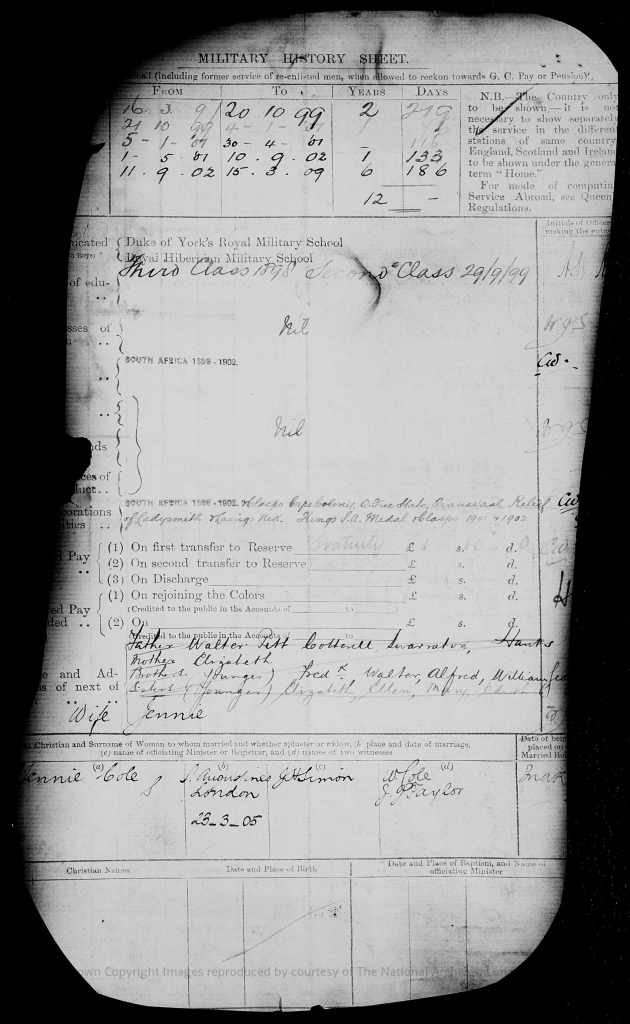 MILITARY HISTORY SHEET.
(including former service of re-enlisted men, when allowed to reckon towards G. C. Pay or Pension).
FROM TO YEARS DAYS
16 3 9 20 10 99 2 219
21 10 99 4 - 1 - 01
5 - 1 - 01 30 - 4 - 01
1 - 5 - 01 10 . 9 . 02 1 133
11 . 9 . 02 15 . 3 . 09 6 186
12 -
N.B.—The Country only
to be shown,—it is not
necessary to show separately
the service in the different
stations of same country
England, Scotland and Ireland
to be shown under the general
term "Home."
For mode of computing
Service Abroad, see Queen's
Regulations.
Initials of Officer
making the entry
Duke of York's Royal Military School
Royal Hibernian Military School
Third Class 1898 Second Class 29/9/99
of edu-
Nil
W.G.S.
SOUTH AFRICA 1899-1902.
Nil
SOUTH AFRICA 1899-1902. Clasps Cape Colony, O. Free State, Transvaal Relief
of Ladysmith & Laings Nek. Kings S.A. Medal & Clasps 1901 & 1902
Pay (1) On first transfer to Reserve Gratuity £ s. d.
(2) On second transfer to Reserve £ s. d.
(3) On Discharge £ s. d.
Pay (1) On rejoining the Colors £ s. d.
(Credited to the public in the Accounts of to )
(2) On £ s. d.
(Credited to the public in the Accounts of to )
Father Walter Pitt Cottrell Swarraton, Hants
Mother Elizabeth
and Ad- Brothers younger) Fred Walter, Alfred, William
of next of Sisters (younger) Elizabeth, Ellen, Mary
Wife Jennie
Christian and Surname of Woman to whom married and whether spinster or widow, (b) place and date of marriage,
(c) name of officiating Minister or Registrar, and (d) names of two witnesses
(a) (b) (c) (d)
Jennie Cole S St. Augustines J.H. Simon W Cole
London J. Taylor
23-3-05
Christian Names Date and Place of Birth Date and Place of Baptism, and Name of
officiating Minister
Crown Copyright Images reproduced by courtesy of The National Archives, London